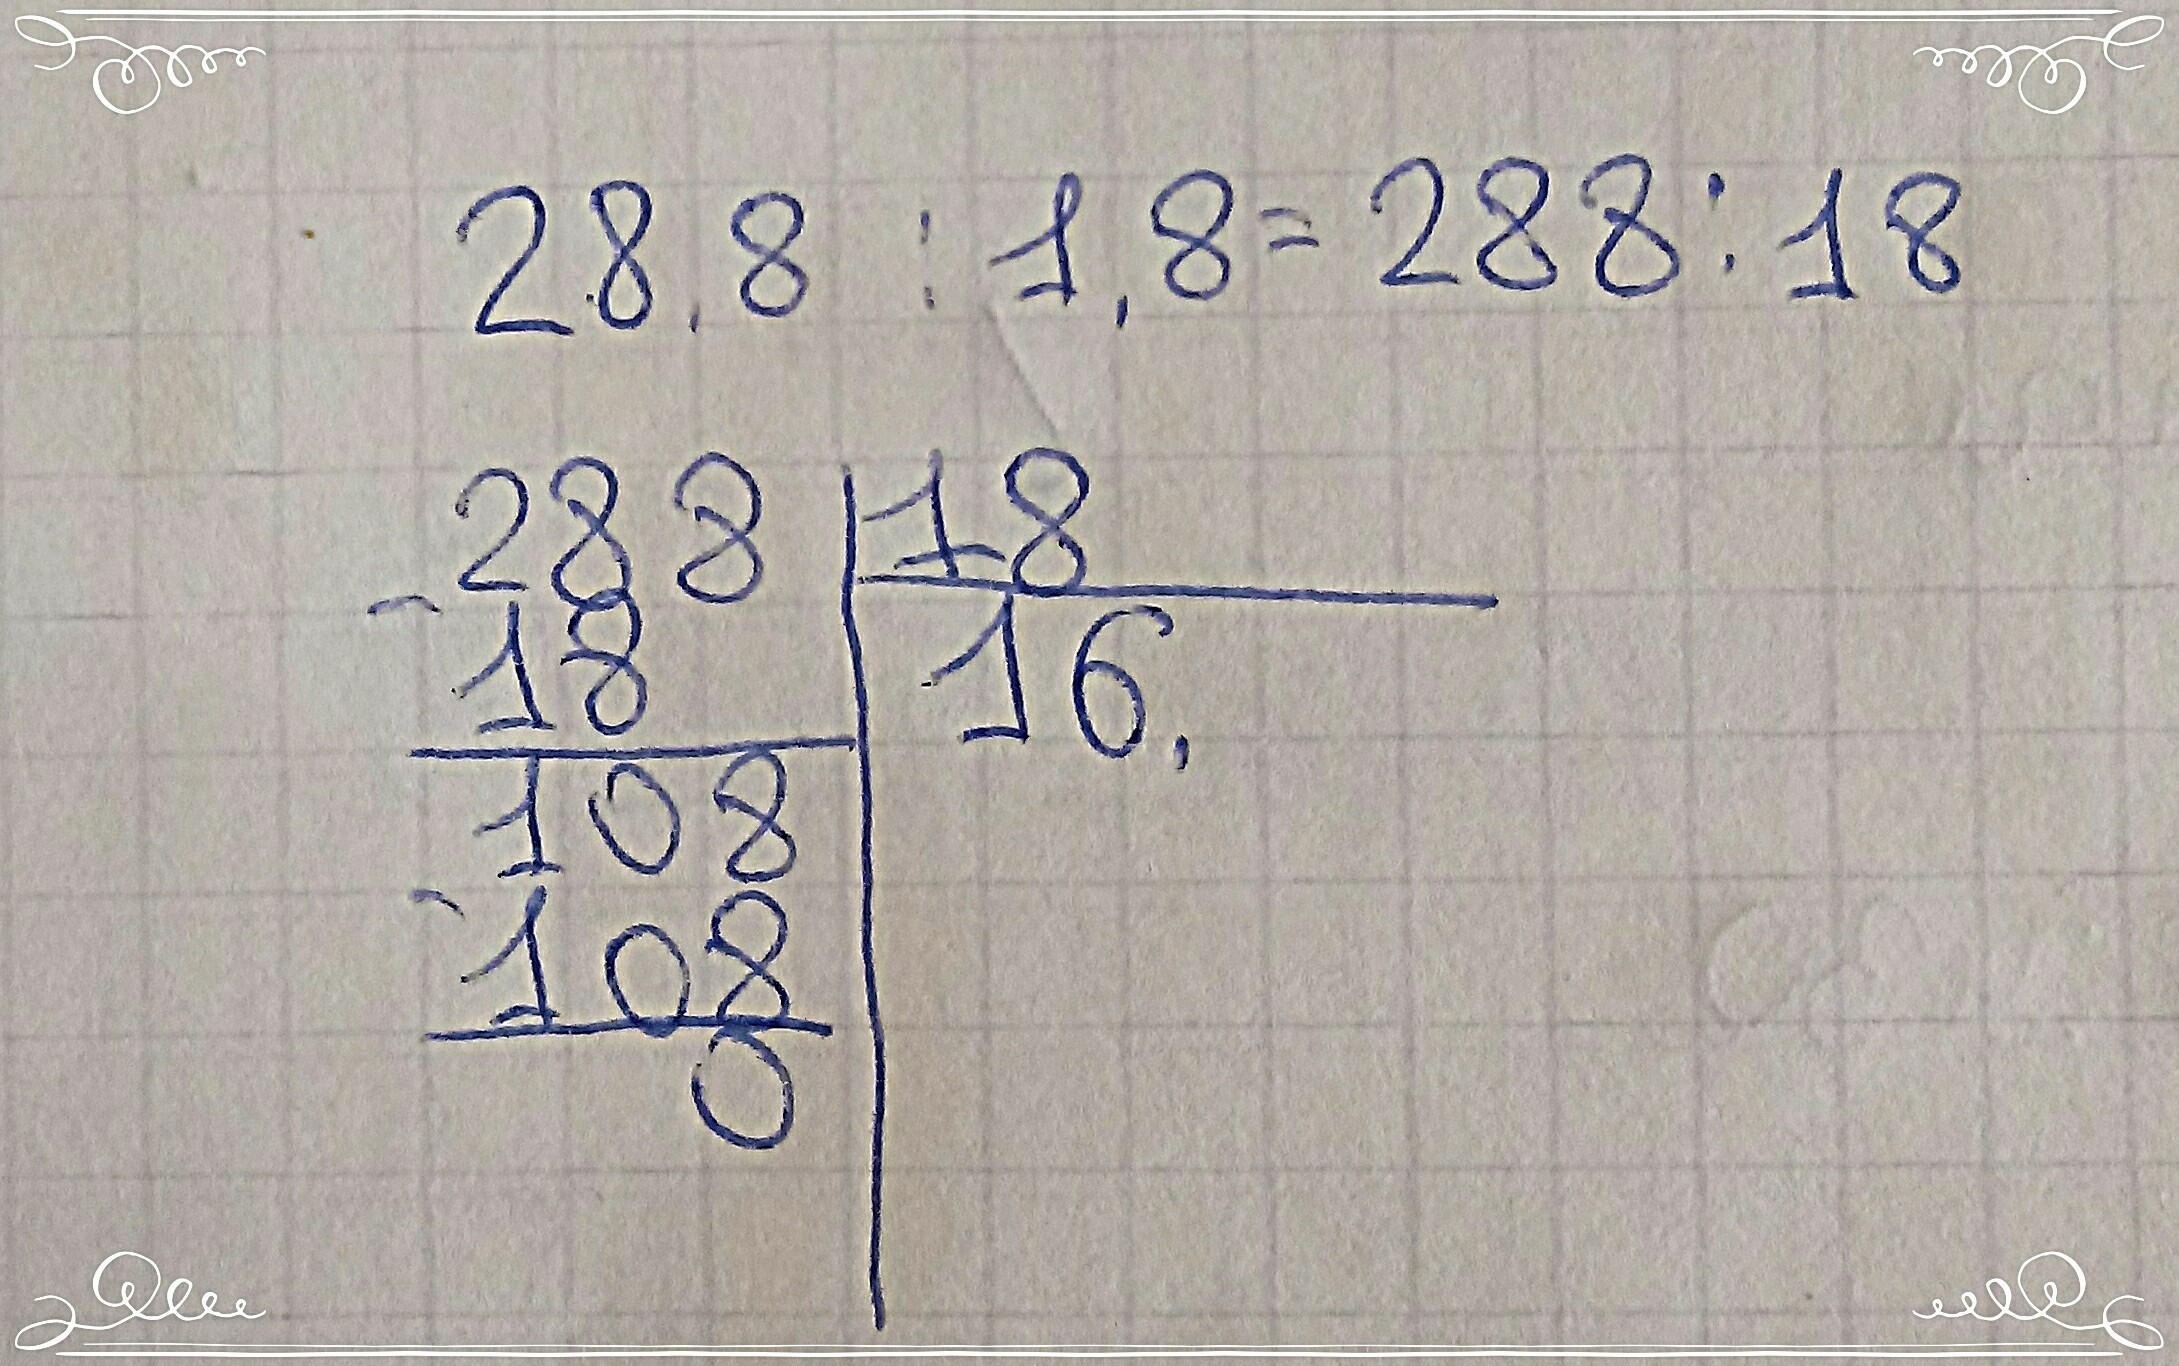 28,8 : 1,8 = 288 : 18
288 | 18
- 18 | 16,
108
- 108
0